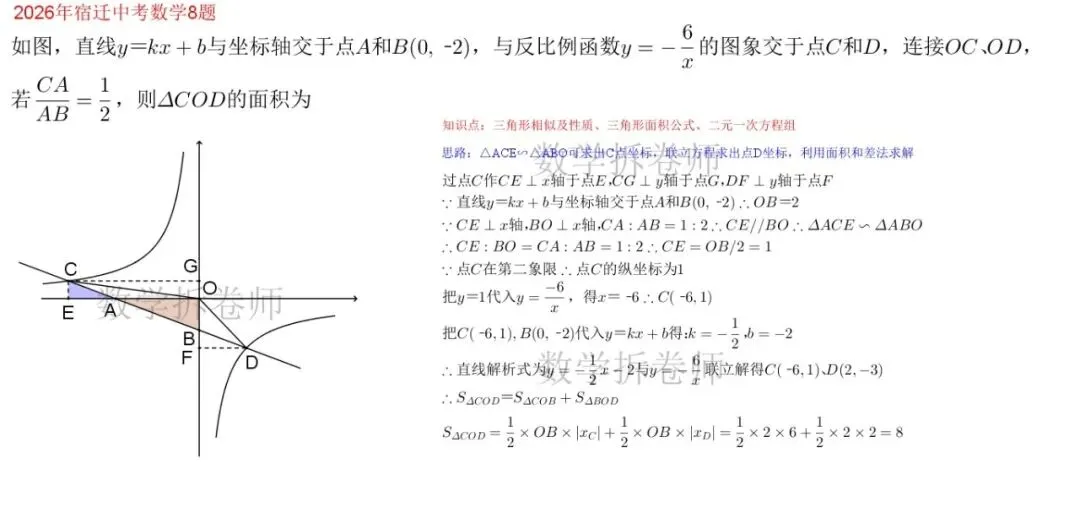 2026年宿迁中考数学8题
如图，直线y=kx+b与坐标轴交于点A和B(0, -2)，与反比例函数y=-6/x的图象交于点C和D，连接OC、OD，
若CA/AB=1/2，则ΔCOD的面积为
知识点：三角形相似及性质、三角形面积公式、二元一次方程组
思路：△ACE∽△ABO可求出C点坐标，联立方程求出点D坐标，利用面积和差法求解
过点C作CE⊥x轴于点E,CG⊥y轴于点G,DF⊥y轴于点F
∵直线y=kx+b与坐标轴交于点A和B(0, -2)∴OB=2
∵CE⊥x轴,BO⊥x轴,CA:AB=1:2∴CE//BO∴ΔACE∽ΔABO
∴CE:BO=CA:AB=1:2∴CE=OB/2=1
∵点C在第二象限∴点C的纵坐标为1
把y=1代入y=-6/x，得x=-6∴C(-6,1)
把C(-6,1),B(0, -2)代入y=kx+b得:k=-1/2,b=-2
∴直线解析式为y=-1/2x-2与y=-6/x联立解得C(-6,1)、D(2,-3)
∴S△COD=S△COB+S△BOD
S△COD=1/2×OB×|xC|+1/2×OB×|xD|=1/2×2×6+1/2×2×2=8
G
C
O
E
A
B
F
D
数学拆卷师
数学拆卷师
数学拆卷师